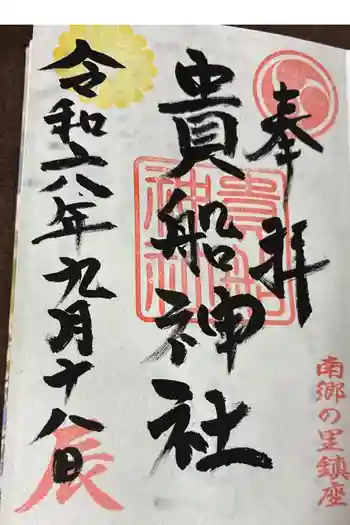 奉拝
南郷の里鎮座
貴船神社
貴船
神社
令和六年九月十八日
辰